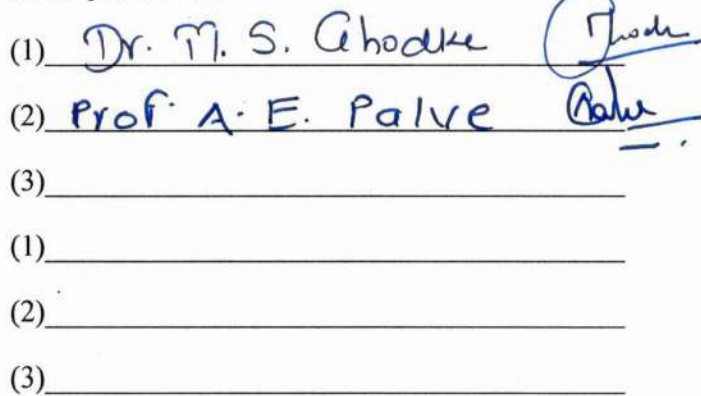 (1) Dr. M. S. Ghodke
(2) Prof. A. E. Palve
(3)
(1)
(2)
(3)